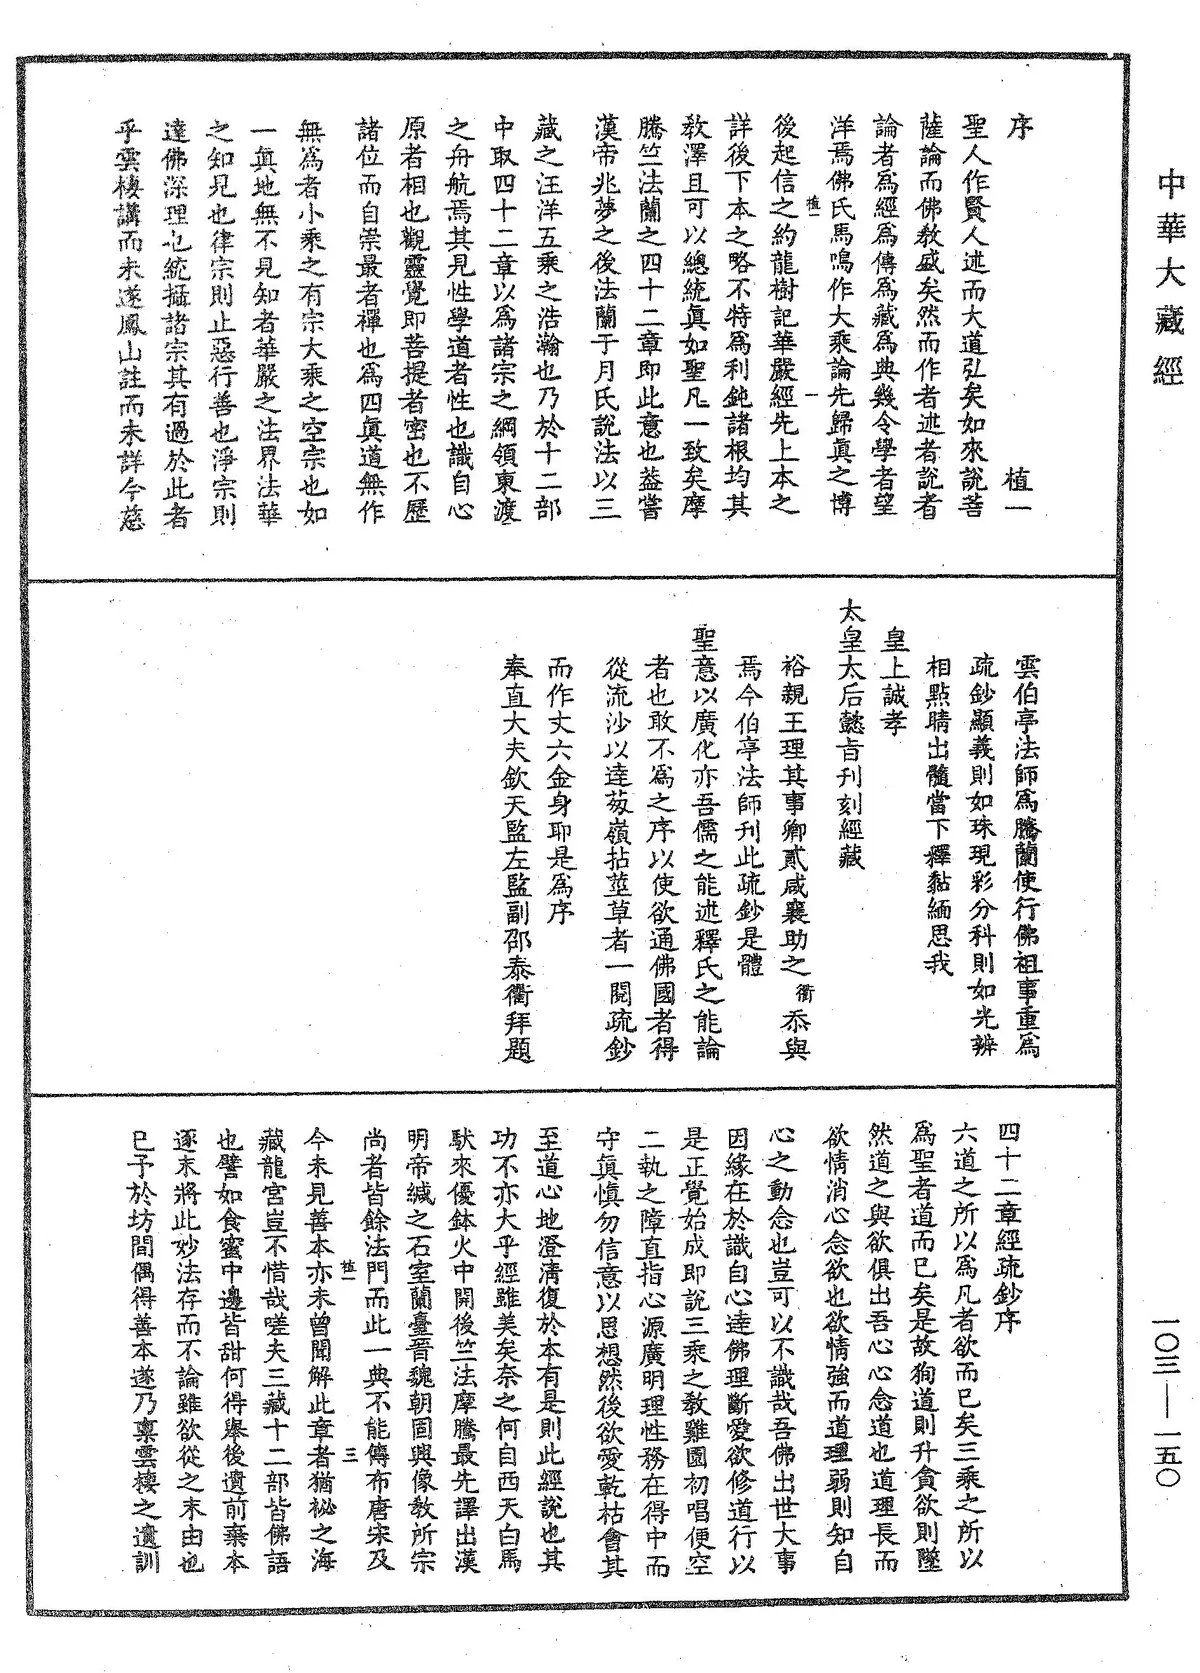 中華大藏經
序　植一
聖人作賢人述而大道弘矣如來說菩
薩論而佛教盛矣然而作者述者說者
論者為經為傳為藏為典幾令學者望
洋焉佛氏馬鳴作大乘論先歸真之博
植一　一
後起信之約龍樹記華嚴經先上本之
詳後下本之略不特為利鈍諸根均其
教澤且可以總統真如聖凡一致矣摩
騰竺法蘭之四十二章即此意也蓋嘗
漢帝兆夢之後法蘭于月氏說法以三
藏之汪洋五乘之浩瀚也乃於十二部
中取四十二章以為諸宗之綱領東渡
之舟航焉其見性學道者性也識自心
原者相也觀靈覺即菩提者密也不歷
諸位而自崇最者禪也為四真道無作
無為者小乘之有宗大乘之空宗也如
一真地無不見知者華嚴之法界法華
之知見也律宗則止惡行善也淨宗則
達佛深理也統攝諸宗其有過於此者
乎雲棲講而未遂鳳山註而未詳今慈
雲伯亭法師為騰蘭使行佛祖事重為
疏鈔顯義則如珠現彩分科則如光辨
相點睛出髓當下釋黏緬思我
皇上誠孝
太皇太后懿旨刊刻經藏
裕親王理其事卿貳咸襄助之衢忝與
焉今伯亭法師刊此疏鈔是體
聖意以廣化亦吾儒之能述釋氏之能論
者也敢不為之序以使欲通佛國者得
從流沙以達蔥嶺拈莖草者一閱疏鈔
而作丈六金身耶是為序
奉直大夫欽天監左監副邵泰衢拜題
四十二章經疏鈔序
六道之所以為凡者欲而已矣三乘之所以
為聖者道而已矣是故狥道則升貪欲則墜
然道之與欲俱出吾心心念道也道理長而
欲情消心念欲也欲情強而道理弱則知自
心之動念也豈可以不識哉吾佛出世大事
因緣在於識自心達佛理斷愛欲修道行以
是正覺始成即說三乘之教雞園初唱便空
二執之障直指心源廣明理性務在得中而
守真慎勿信意以思想然後欲愛乾枯會其
至道心地澄清復於本有是則此經說也其
功不亦大乎經雖美矣奈之何自西天白馬
馱來優鉢火中開後竺法摩騰最先譯出漢
明帝緘之石室蘭臺晉魏朝固興像教所宗
尚者皆餘法門而此一典不能傳布唐宋及
植一　三
今未見善本亦未曾聞解此章者猶祕之海
藏龍宮豈不惜哉嗟夫三藏十二部皆佛語
也譬如食蜜中邊皆甜何得舉後遺前棄本
逐末將此妙法存而不論雖欲從之末由也
已予於坊間偶得善本遂乃稟雲棲之遺訓
一〇三—一五〇